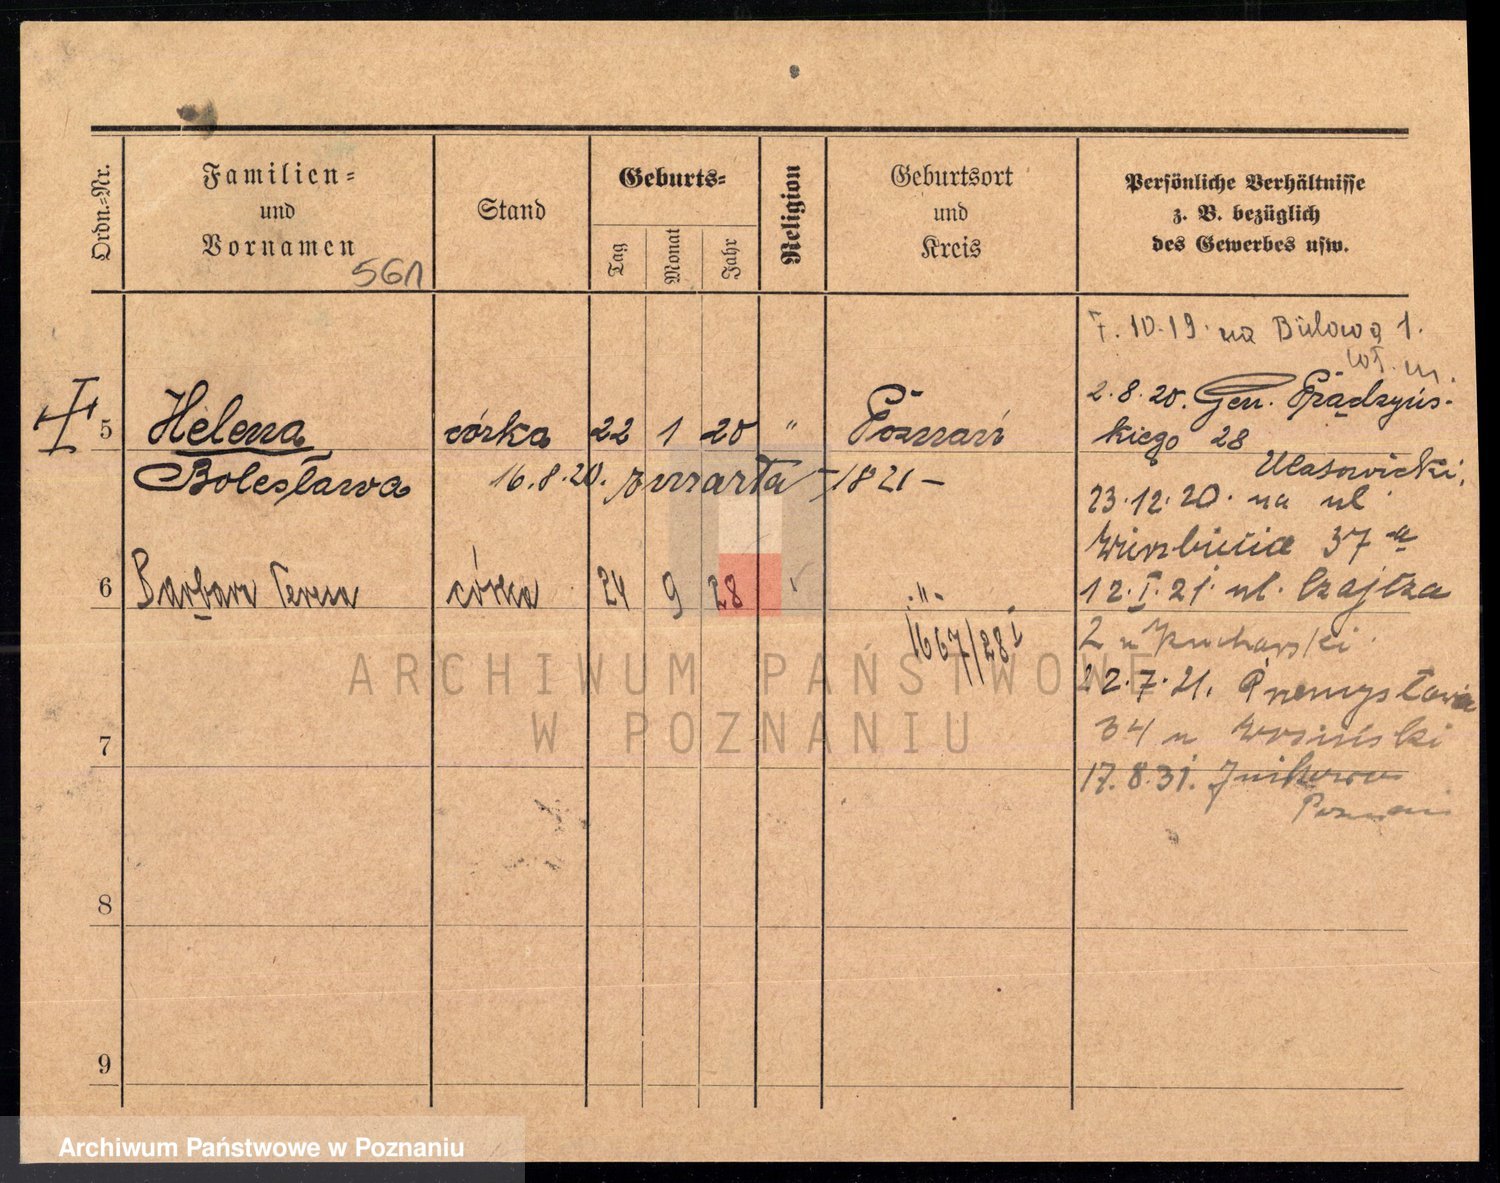 Ordn.-Nr.
Familien-
und
Vornamen
561
Stand
Geburts-
Tag
Monat
Jahr
Religion
Geburtsort
und
Kreis
Persönliche Verhältnisse
z. B. bezüglich
des Gewerbes usw.
7.10.19. na Bülowa 1.
wł. m.
5 Helena córka 22 1 20 " Poznań
2.8.20. Gen. Prądzyńs-
kiego 28
Bolesława 16.8.20. zmarła - 1821 -
23.12.20. na ul
Wierzbięcice 37 a
6 Barbara Teresa córka 24 9 28 " -"-
1667/28
12.I.21. ul. Czajcza
2 u Kucharski
22.7.21. Przemysłowa
7
34 u
17.8.31. Junikowo
Poznań
8
9
ARCHIWUM PAŃSTWOWE
W POZNANIU
Archiwum Państwowe w Poznaniu